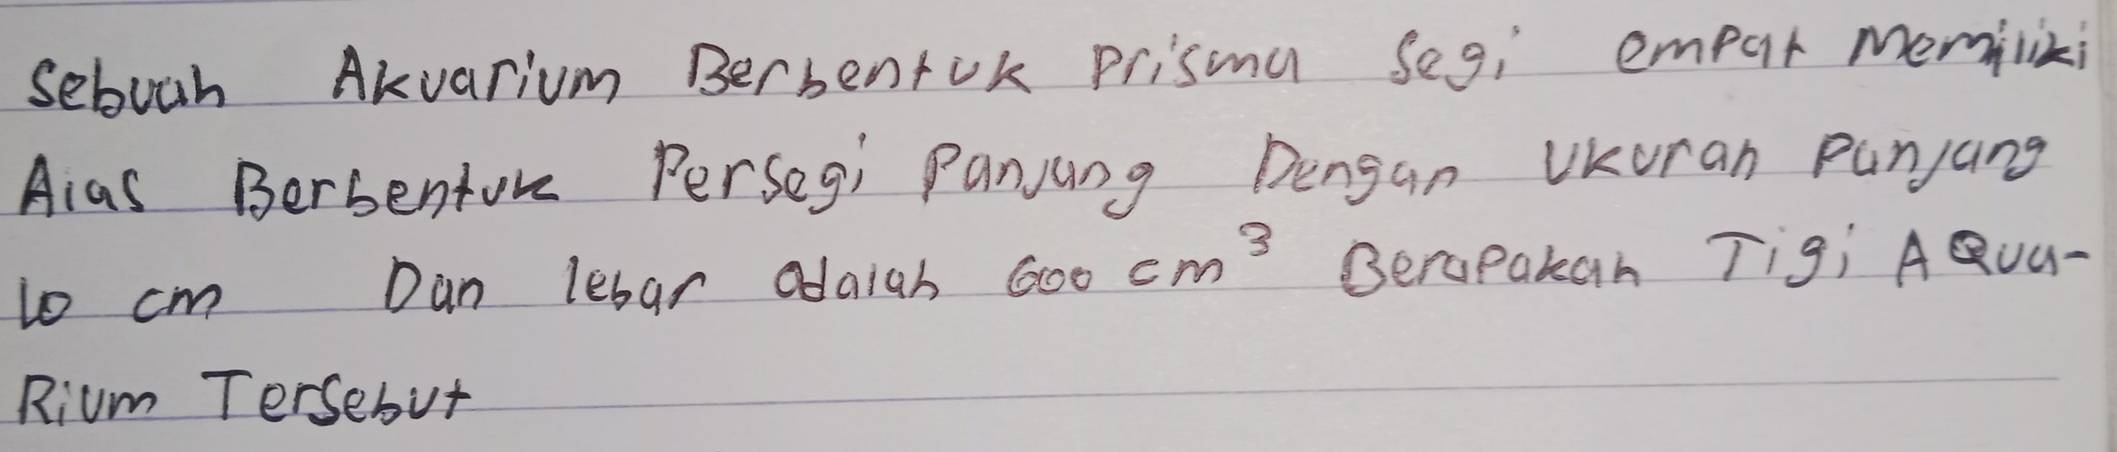 Sebuah Akuarium Berbentuk Prisma Segi empat Memiliki
Alas Berbentuk Persegi Panjang Dengan Ukuran Panjang
10 cm Dan lebar adalah 600 cm³ Berapakah Tigi AQua-
Rium Tersebut